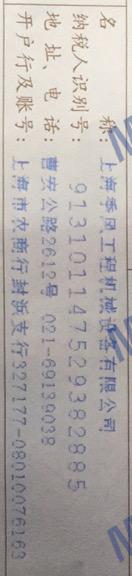 名 称：上海季风工程机械设备有限公司
纳税人识别号：913101147529382885
地址、电话：曹安公路2612号 021-69139039
开户行及账号：上海市农商行封浜支行327177-08010076163